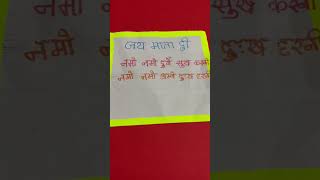 जय माता दी
नमो नमो दुर्गे सुख करनी
नमो नमो अम्बे दुःख हरनी